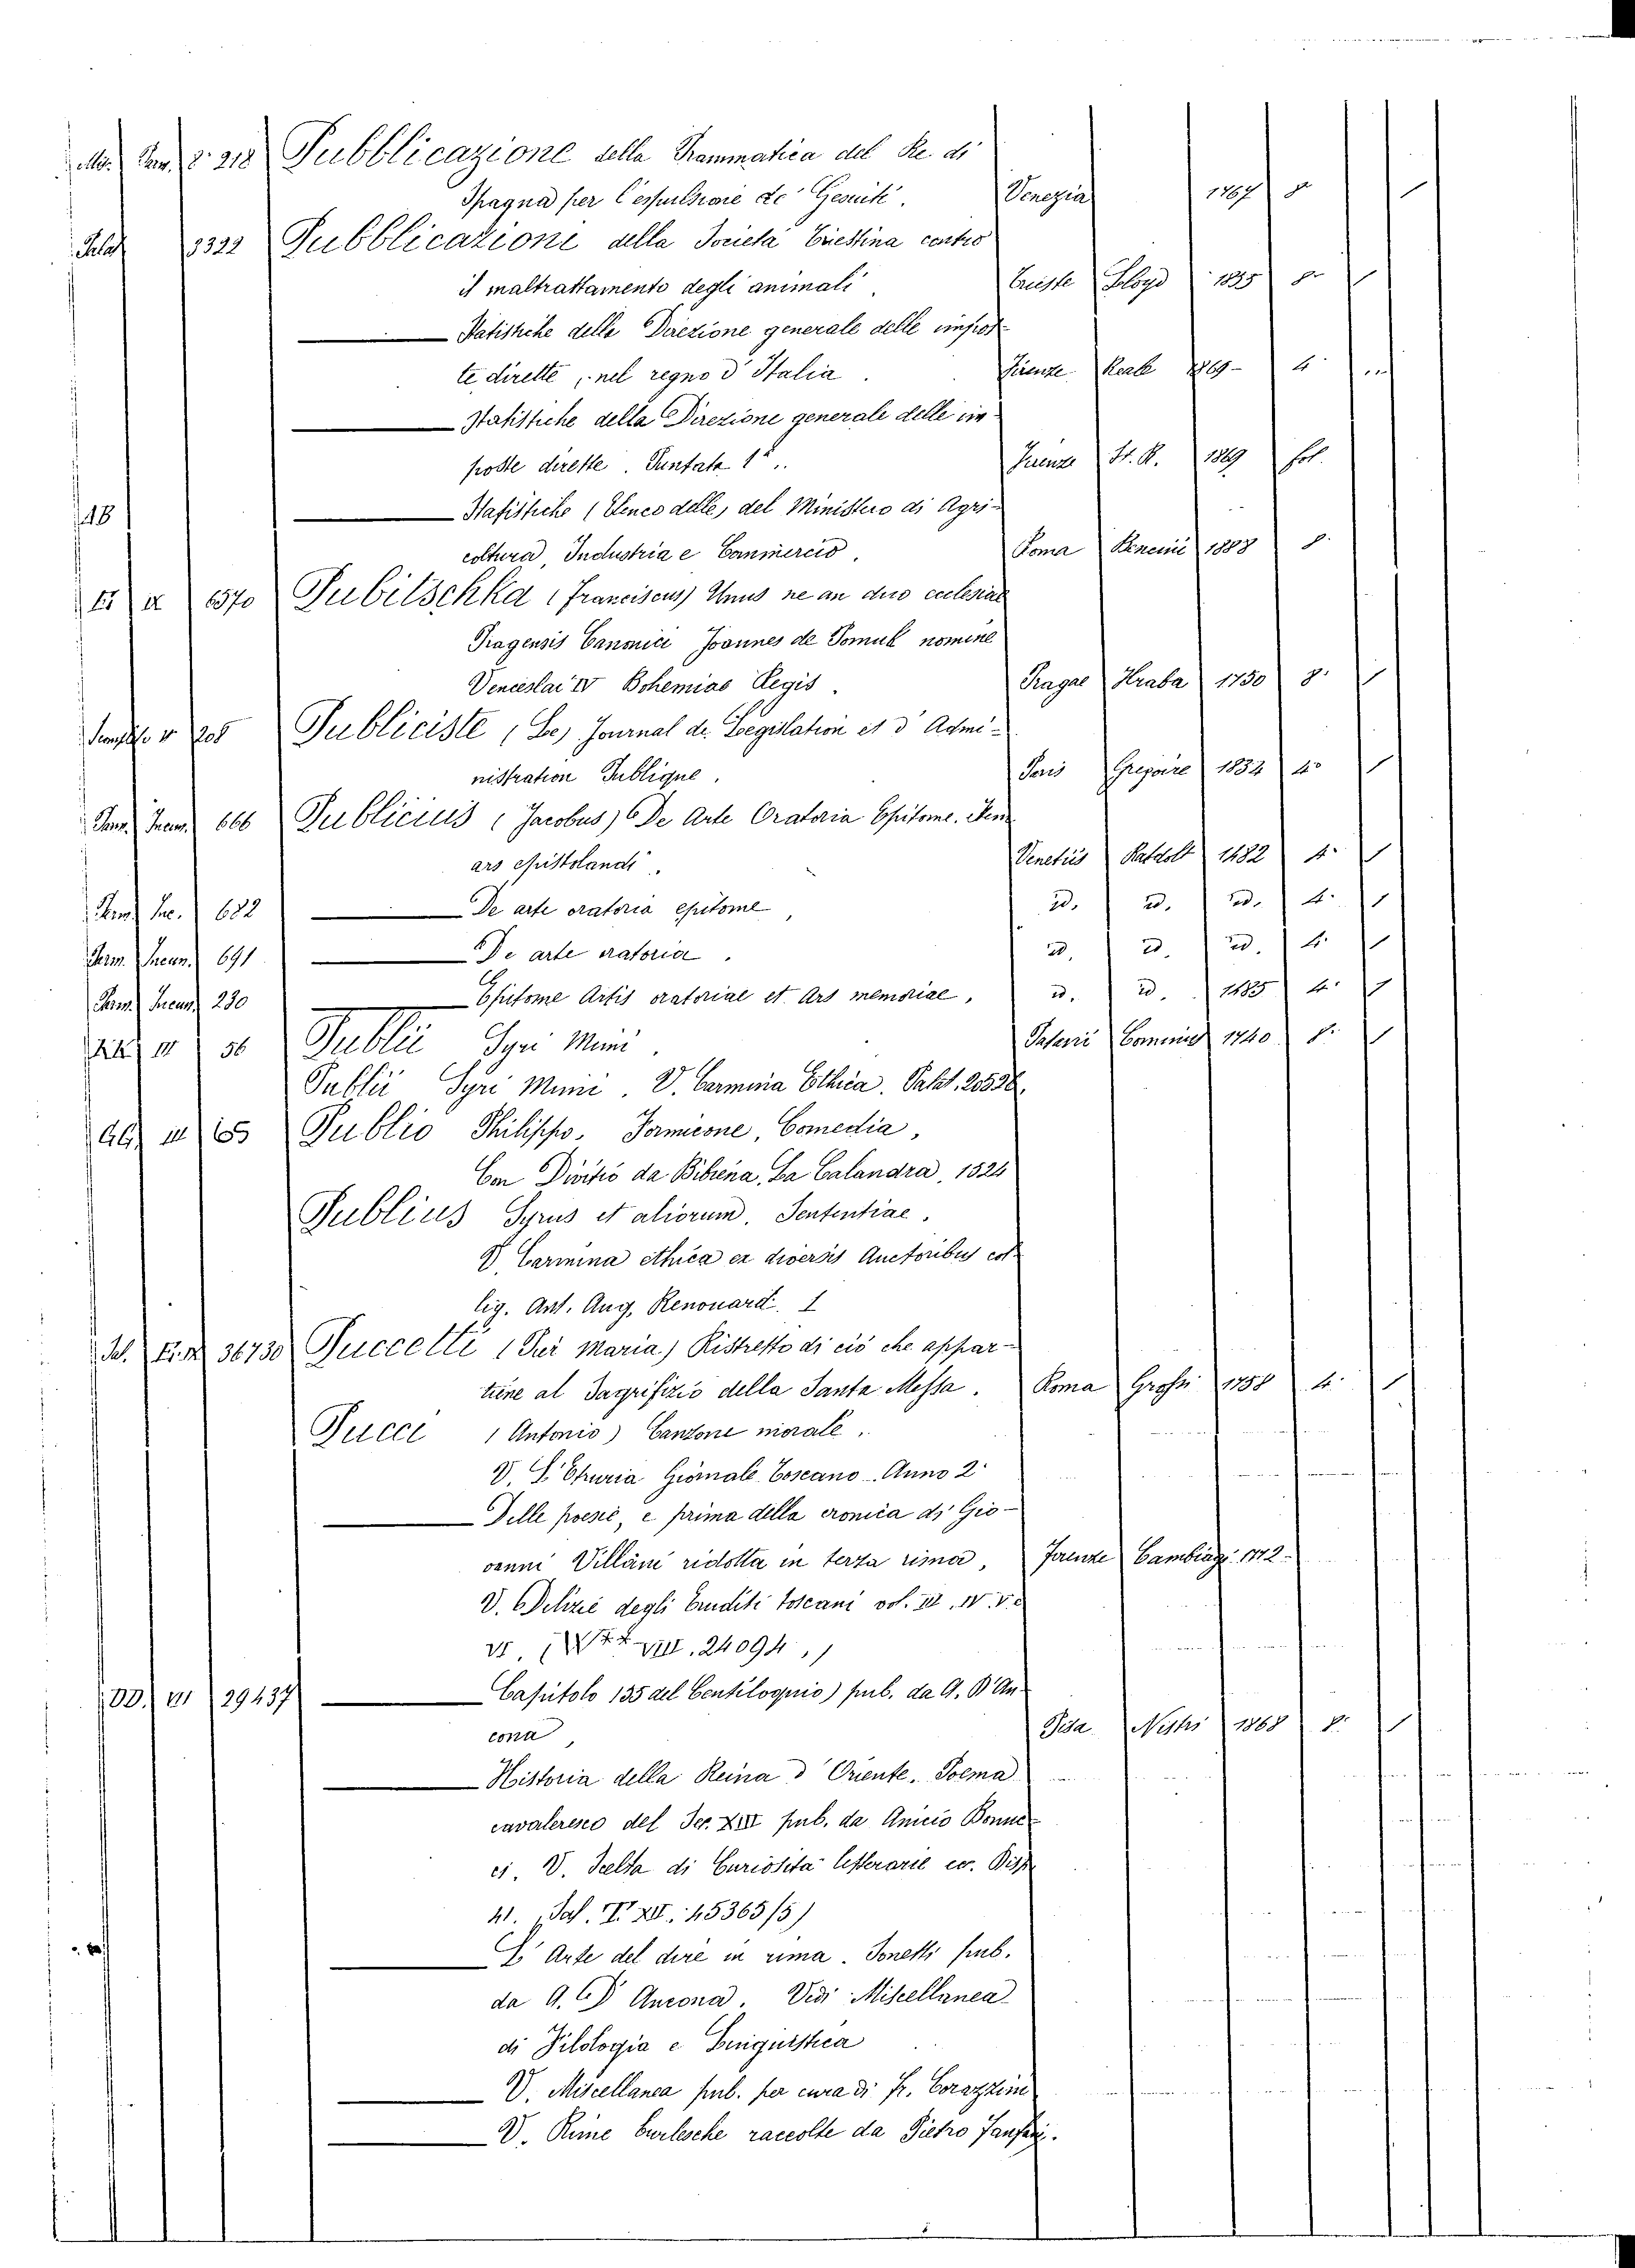 218 Pubblicazione della Prammatica del Re di
Spagna per l'espulsione de' Gesuiti. Venezia 1767 8
3322 Pubblicazioni della Società Triestina contro
il maltrattamento degli animali. Trieste Lloyd 1895 8 1
Statistiche della Direzione generale delle impos-
te dirette, nel regno d'Italia. Firenze Reale 1869- 4
Statistiche della Direzione generale delle im-
poste dirette. Puntata 1ª. Firenze St. R. 1869 fol.
Statistiche (Elenco delle) del Ministero di Agri-
coltura, Industria e Commercio. Roma 1888 8
6370 Pubitschka (Franciscus) Unus ne an duo ecclesiae
Pragensis Canonici Joannes de Pomuk nomine
Venceslai IV Bohemiae Regis. Pragae Hraba 1750 8. 1
V 205 Publiciste (Le) Journal de Legislation et d'Admi-
nistration Publique. Paris Gregoire 1832 4º 1
Incun. 666 Publicius (Jacobus) De Arte Oratoria Epitome. Item
ars epistolandi. Venetiis Ratdolt 1482 4. 1
Inc. 682 De arte oratoria epitome, id. id. id. 4. 1
Incun. 691 De arte oratoria. id. id. id. 4. 1
Incun. 230 Epitome Artis oratoriae et Ars memoriae, id. id. 1485 4. 1
III 56 Publii Syri Mimi. Patavii Cominus 1740 8. 1
Publii Syri Mimi. V. Carmina Ethica. 20536.
III 185 Publio Philippo. Formicone, Comedia,
Con Divitio da Bibiena, La Calandra, 1526
Publius Syrus et aliorum. Sententiae.
V. Carmina ethica ex diversis Auctoribus col-
lig. Ant. Aug. Renouard. 1
36730 Puccetti (Pier Maria) Ristretto di ciò che appar-
tiene al Sagrifizio della Santa Messa. Roma Grossi 1758 4. 1
Pucci (Antonio) Canzone morale.
V. L'Etruria Giornale Toscano. Anno 2
Delle poesie, e prima della cronica di Gio-
vanni Villani ridotta in terza rima, Firenze Cambiagi 1772-
V. Delizie degli Eruditi toscani vol. III. IV. V.
VI. VIII. 24094.)
DD. VI 29437 Capitolo 135 del Centiloquio) pub. da A. D'An-
cona, Pisa Nistri 1868 8. 1
Historia della Reina d'Oriente. Poema
cavaleresco del Sec. XIII pub. da Anicio Bonuc-
ci. V. Scelta di Curiosità letterarie ec. Disp
41. Sal. T. XII. 45365/5)
L'Arte del dire in rima. Sonetti pub.
da A. D'Ancona. Vedi Miscellanea
di Filologia e Linguistica
V. Miscellanea pub. per cura di Fr. Corazzini
V. Rime burlesche raccolte da Pietro Fanfani.